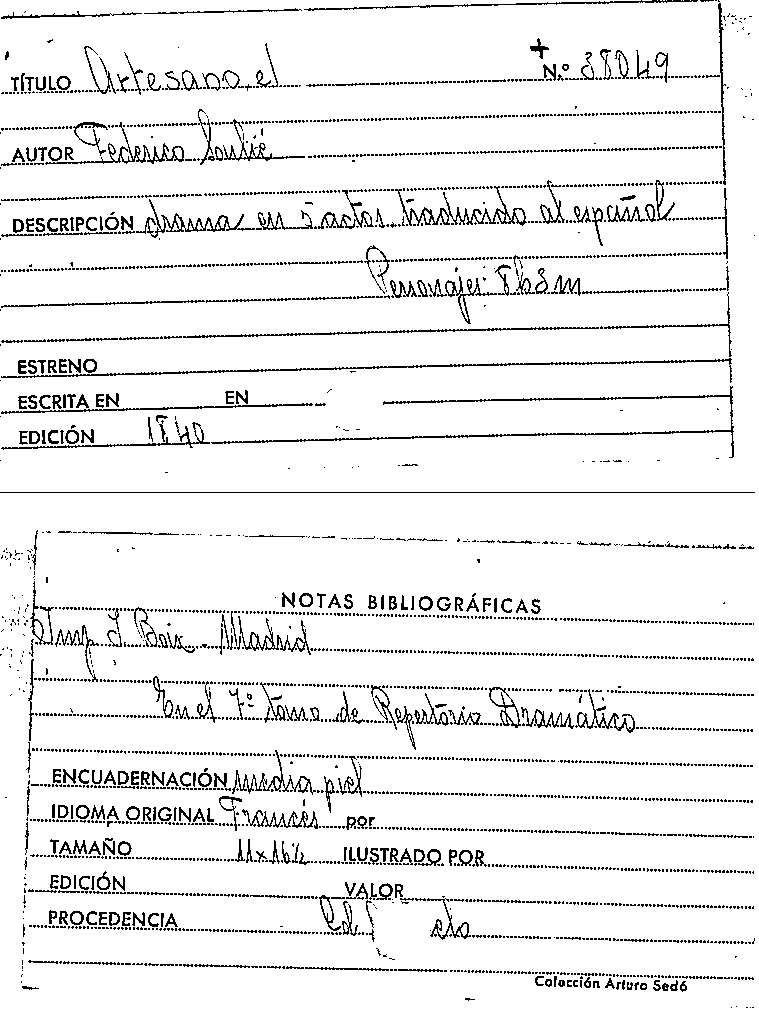 TÍTULO Artesano, el + N.º 38049
AUTOR Federico Soulié
DESCRIPCIÓN drama en 5 actos, traducido al español
Personajes: 8h3m
ESTRENO
ESCRITA EN EN
EDICIÓN 1840
NOTAS BIBLIOGRÁFICAS
Imp I Boix - Madrid
En el 7º tomo de Repertorio Dramático
ENCUADERNACIÓN media piel
IDIOMA ORIGINAL Francés por
TAMAÑO 11x16½ ILUSTRADO POR
EDICIÓN VALOR
PROCEDENCIA
Colección Arturo Sedó